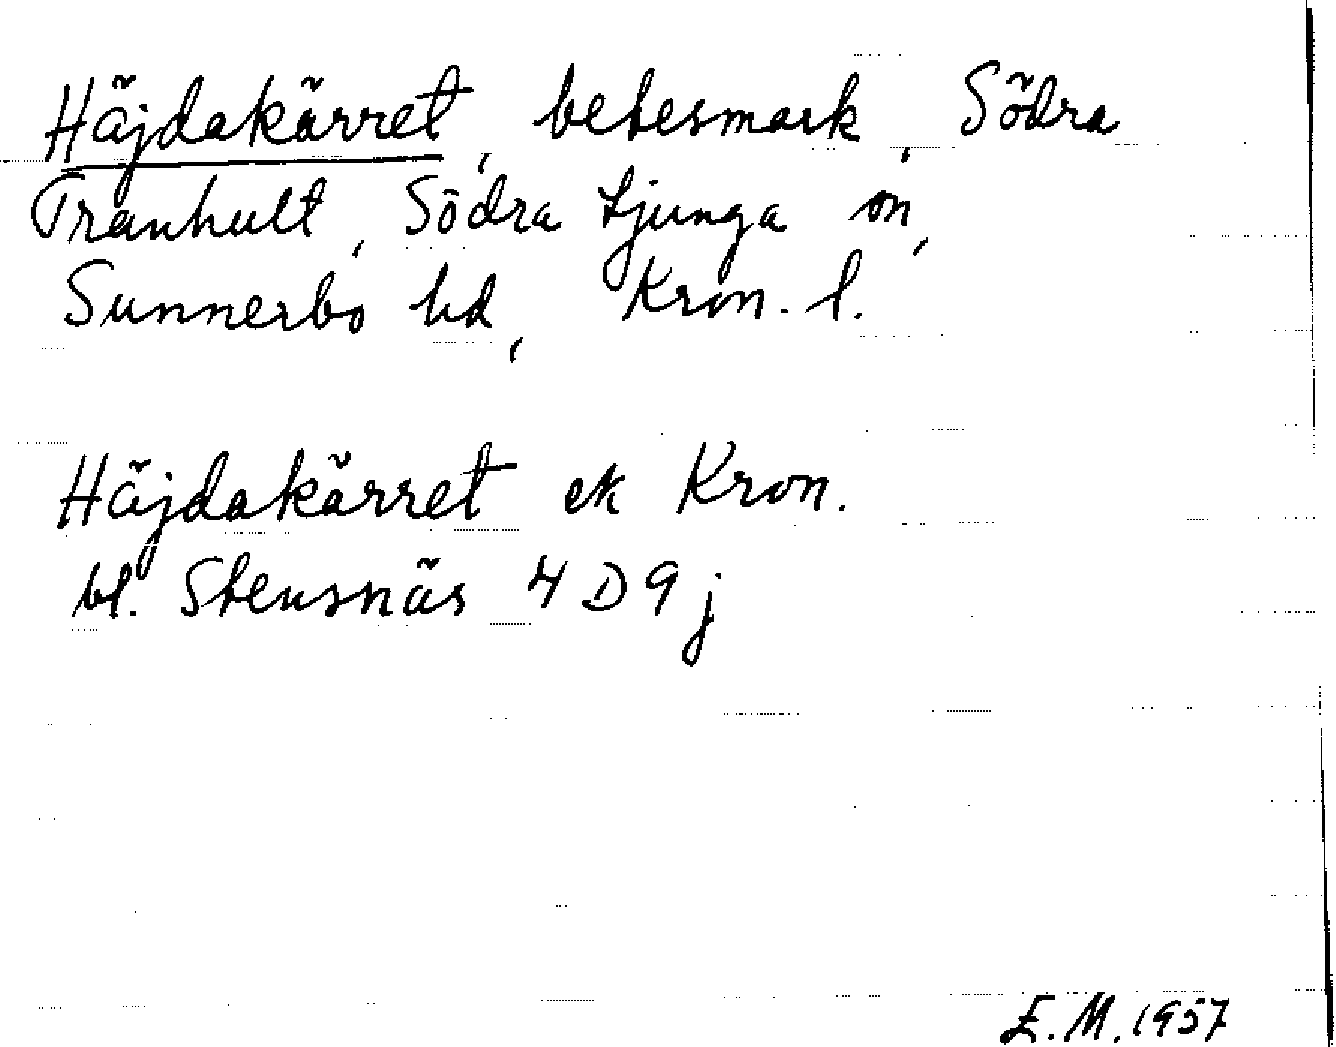 Häjdakärret, betesmark, Södra
Tranhult, Södra Ljunga sn,
Sunnerbo hd, Kron. l.
Häjdakärret ek Kron.
bl. Stensnäs 4 D 9 j
E. M. 1957